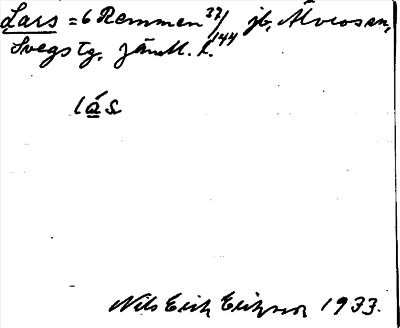 Lars = 6 Remmen 37/144 jb, Älvros sn,
Svegs tg, Jämtl. l.
lás
Nils Erik Erikson 1933.